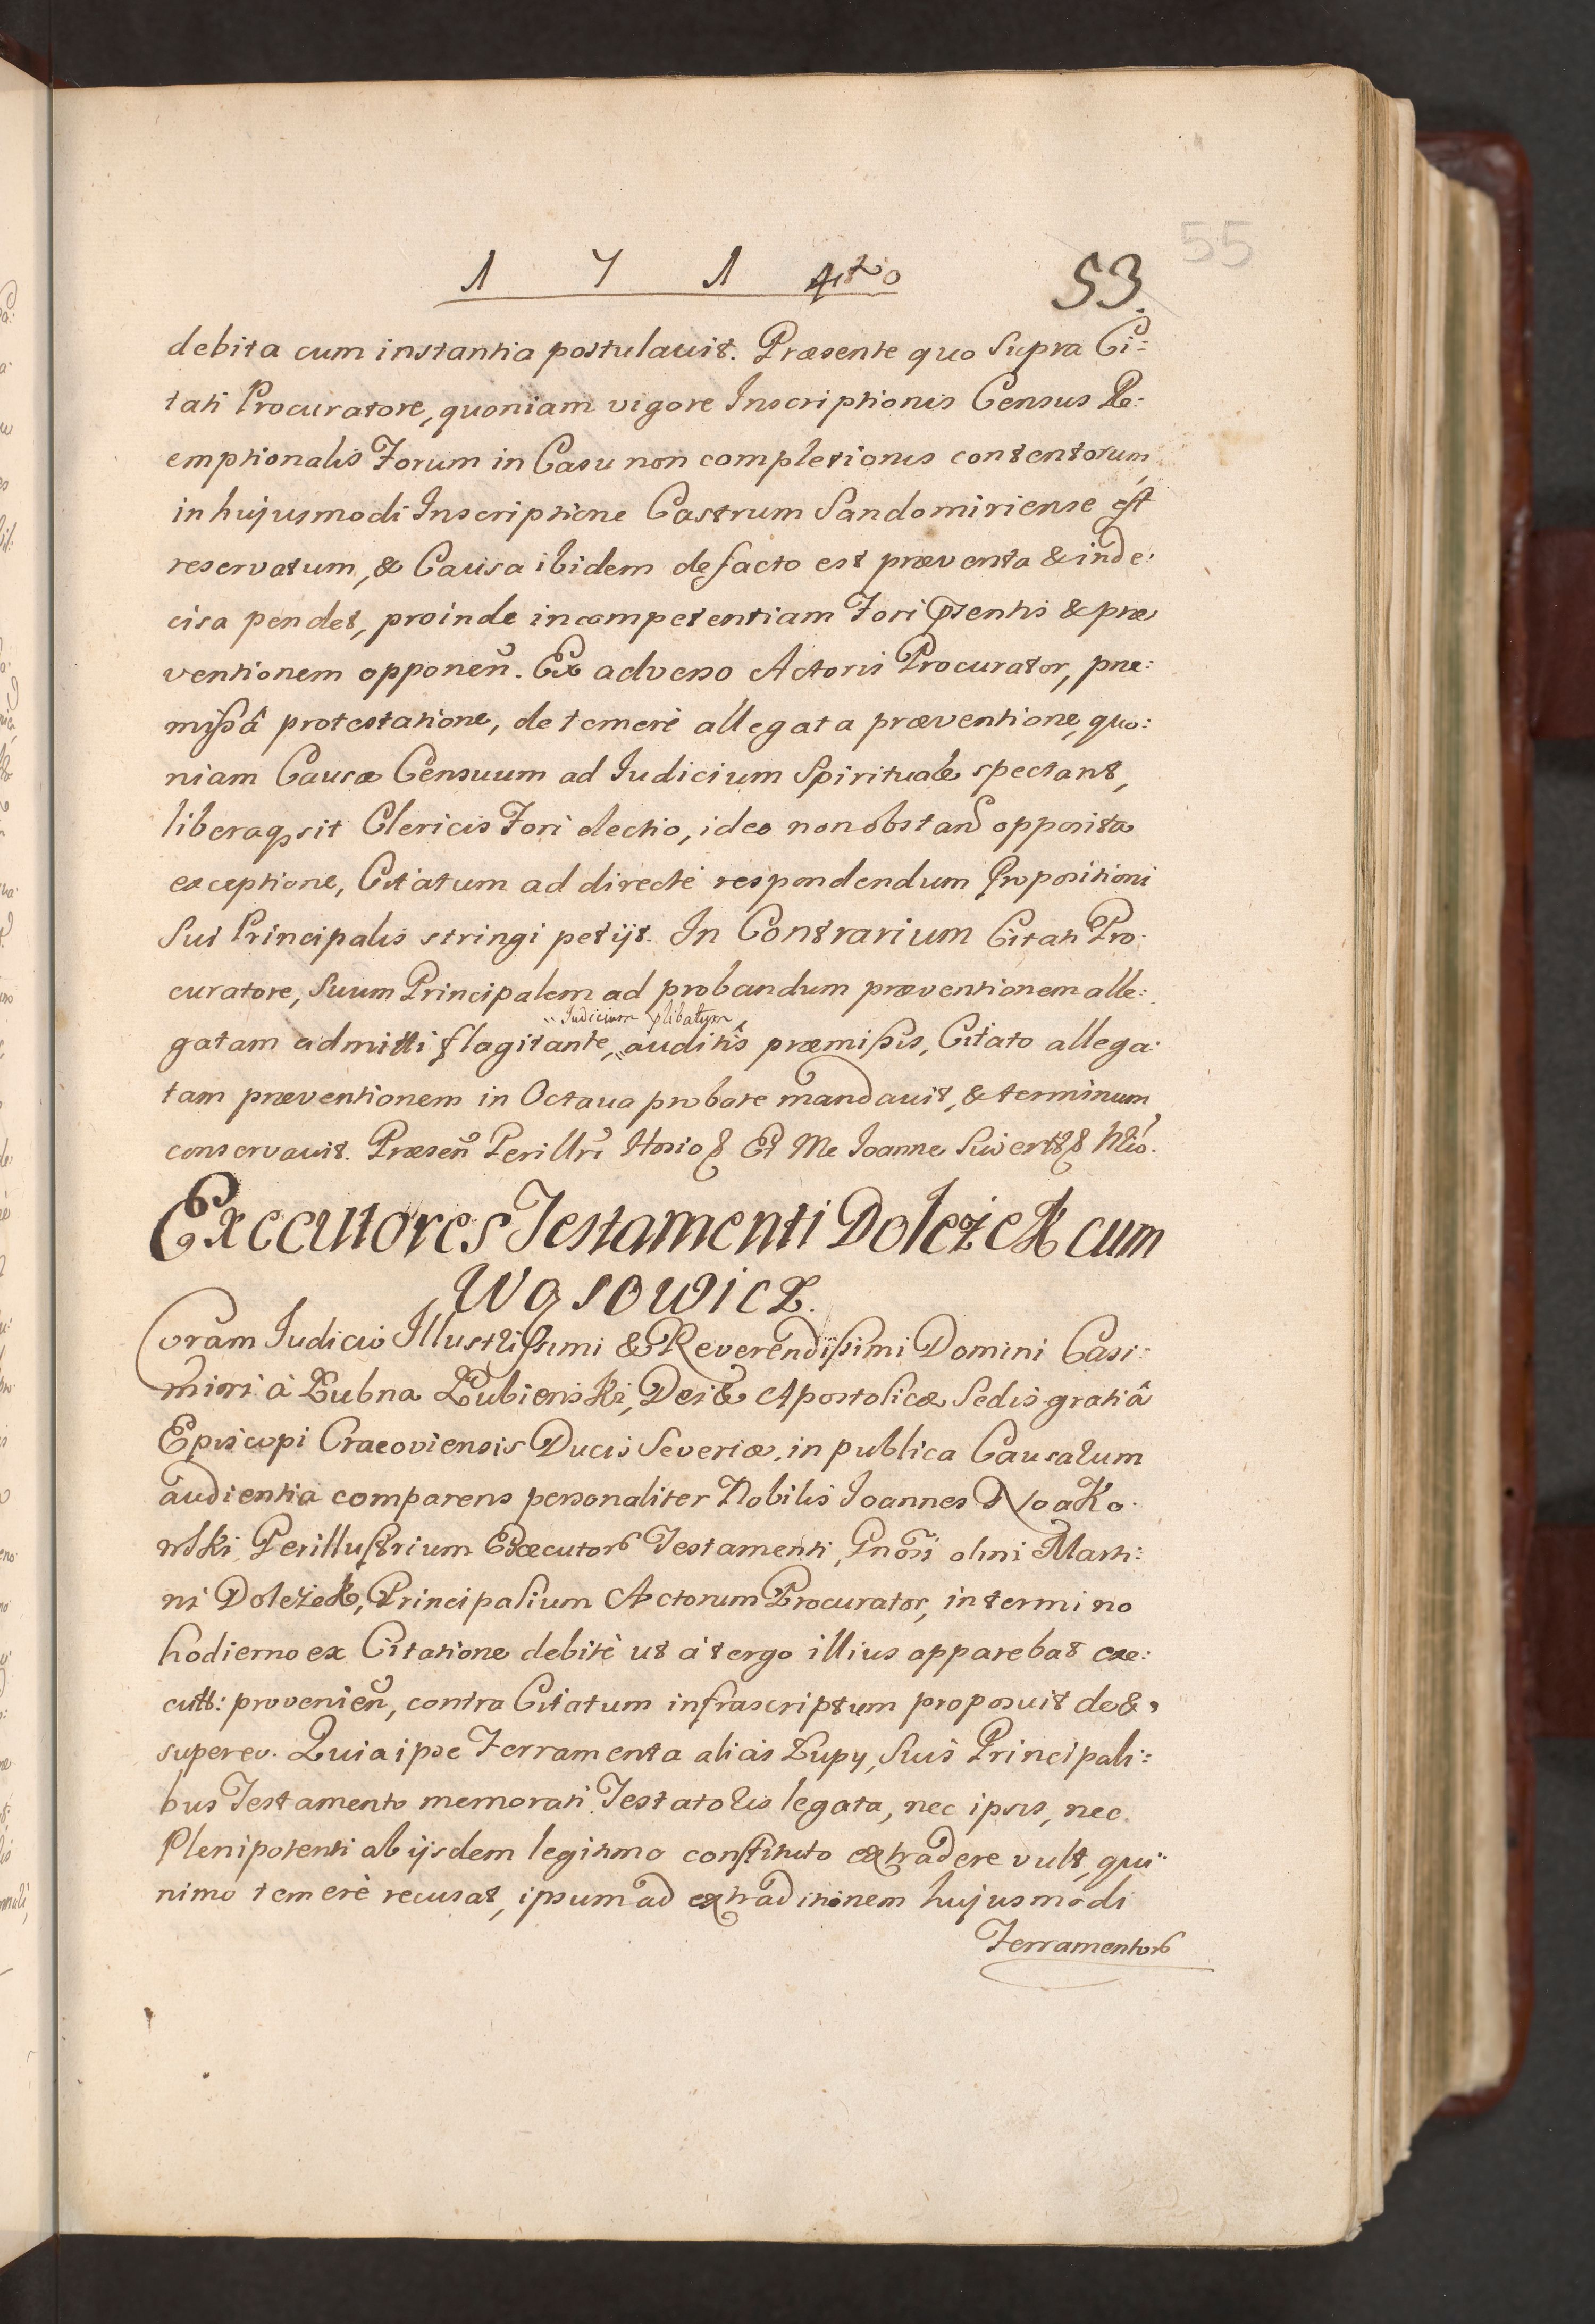 55
1 7 1 4to 53.
debita cum instantia postulavit. Præsente quo Supra Ci=
tati Procuratore, quoniam vigore Inscriptionis Census Re=
emptionalis Forum in Casu non completionis contentorum
in hujusmodi Inscriptione Castrum Sandomiriense est
reservatum, & Causa ibidem de facto est præventa & inde:
cisa pendet, proinde incompetentiam Fori ꝑsentis & præ
ventionem opponen̄. Ex adverso Actoris Procurator, præ:
missâ protestatione, de temerè allegata præventione, quo:
niam Causæ Censuum ad Iudicium Spirituale spectant,
liberaqꝫ sit Clericis Fori electio, ideo non obstan̄ opposita
exceptione, Citatum ad directè respondendum Propositioni
Sui Principalis stringi petijt. In Contrarium Citati Pro:
curatore, Suum Principalem ad probandum præventionem alle:
Iudicium ꝑlibatum
gatam admitti flagitante, auditis præmissis, Citato allega:
tam præventionem in Octava probare mandavit, & terminum
conservavit. Præsen̄ Perillri Hosio & Et Me Ioanne Siwert
Executores Testamenti Doležek cum
Wąsowicz.
Coram Iudicio Illustrissimi & Reverendissimi Domini Casi:
miri à Łubna Łubienski, Dei & Apostolicæ Sedis gratiâ
Episcopi Cracoviensis Ducis Severiæ, in publica Causarum
audientia comparens personaliter Nobilis Ioannes Noako:
wski, Perillustrium Executorꝫ Testamenti, Gnōsi olim Marti:
ni Doležek, Principalium Actorum Procurator, in termino
hodierno ex Citatione debitè ut à tergo illius apparebat exe:
cutt: provenien̄, contra Citatum infrascriptum proposuit de &
super eo. Quia ipse Ferramenta aliàs Łupy, Suis Principali=
bus Testamento memorati Testatoris legata, nec ipsis, nec
Plenipotenti ab ijsdem legitimo constituto extradere vult, qui
nimo temerè recusat, ipsum ad extraditionem hujusmodi
Ferramentorꝫ